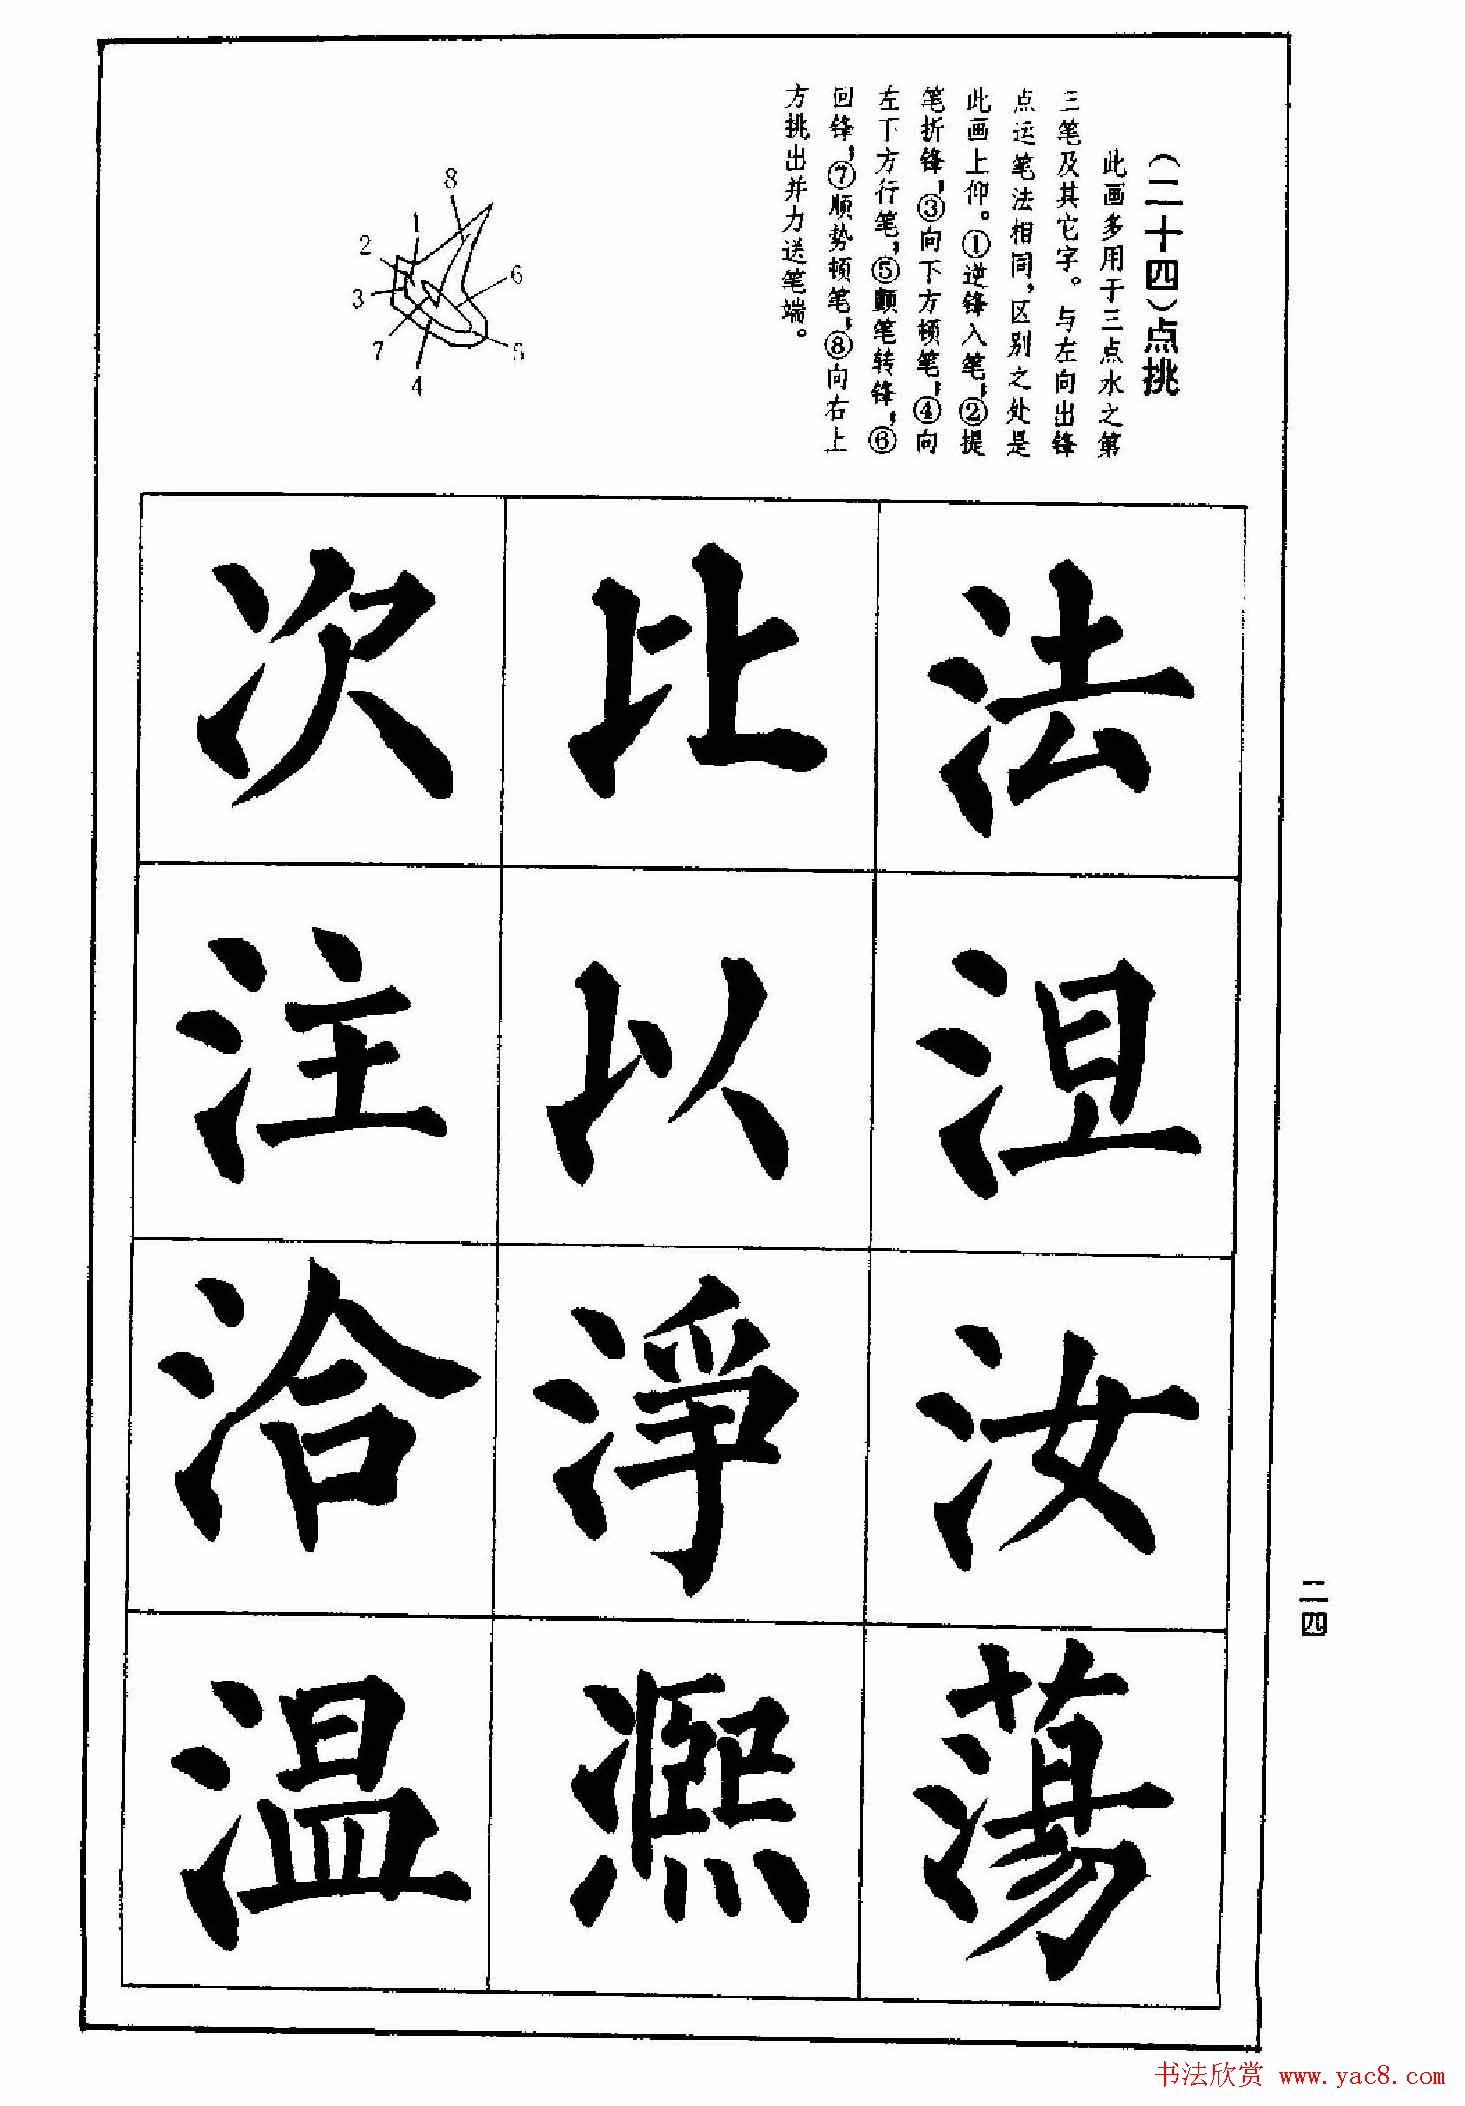 (二十四)点挑
此画多用于三点水之第
三笔及其它字。与左向出锋
点运笔法相同,区别之处是
此画上仰。①逆锋入笔;②提
笔折锋;③向下方顿笔;④向
左下方行笔;⑤颤笔转锋;⑥
回锋;⑦顺势顿笔;⑧向右上
方挑出并力送笔端。
8
1
2
6
3
7
5
4
法涅汝蕩
比以淨凞
次注洽温
二四
书法欣赏 www.yac8.com